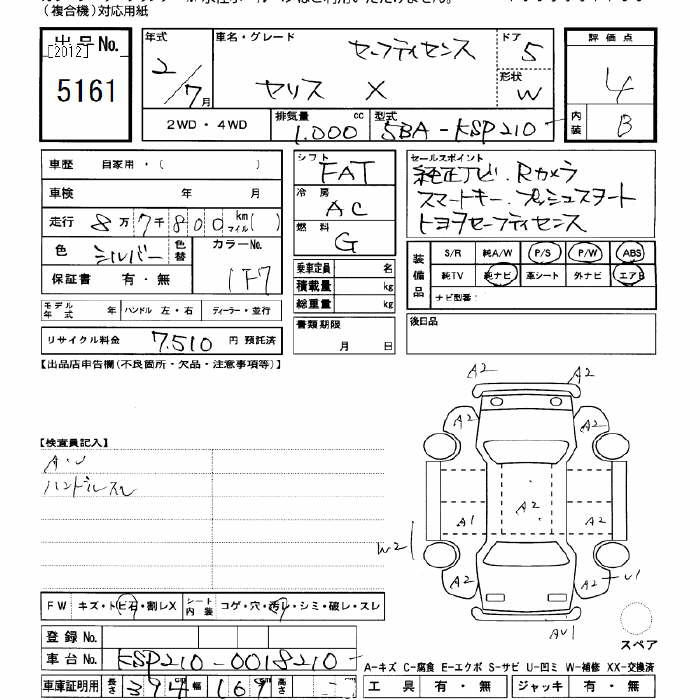 （複合機）対応用紙
出品No.
[2012]
5161
年式
2/7月
車名・グレード
セーフティセンス
ヤリス X
ドア
5
形状
W
評価点
4
内装
B
2WD・4WD
排気量 cc
1.000
型式
5BA-KSP210
車歴 自家用・( )
車検 年 月
走行 8万7千800 km マイル( )
色 シルバー 色替 カラーNo. 1F7
保証書 有・無
モデル年式 年 ハンドル 左・右 ディーラー・並行
リサイクル料金 7.510 円 預託済
シフト
FAT
冷房
AC
燃料
G
乗車定員 名
積載量 kg
総重量 kg
書類期限
月 日
セールスポイント
純正ナビ.Rカメラ
スマートキー.プッシュスタート
トヨタセーフティセンス
装備品
S/R 純A/W P/S P/W ABS
純TV 純ナビ 革シート 外ナビ エアB
ナビ型番：
後日品
【出品店申告欄（不良箇所・欠品・注意事項等）】
【検査員記入】
A・U
ハンドルスレ
A2 A2
A2 A2
A2
A1 A2
W21
A2 A2 U1
AU1
スペア
FW キズ・トビ石・割レX シート内装 コゲ・穴・汚レ・シミ・破レ・スレ
登録No.
車台No. KSP210-0018210
車庫証明用 長さ 394 cm 幅 169 cm 高さ
A-キズ C-腐食 E-エクボ S-サビ U-凹ミ W-補修 XX-交換済
工具 有・無 ジャッキ 有・無